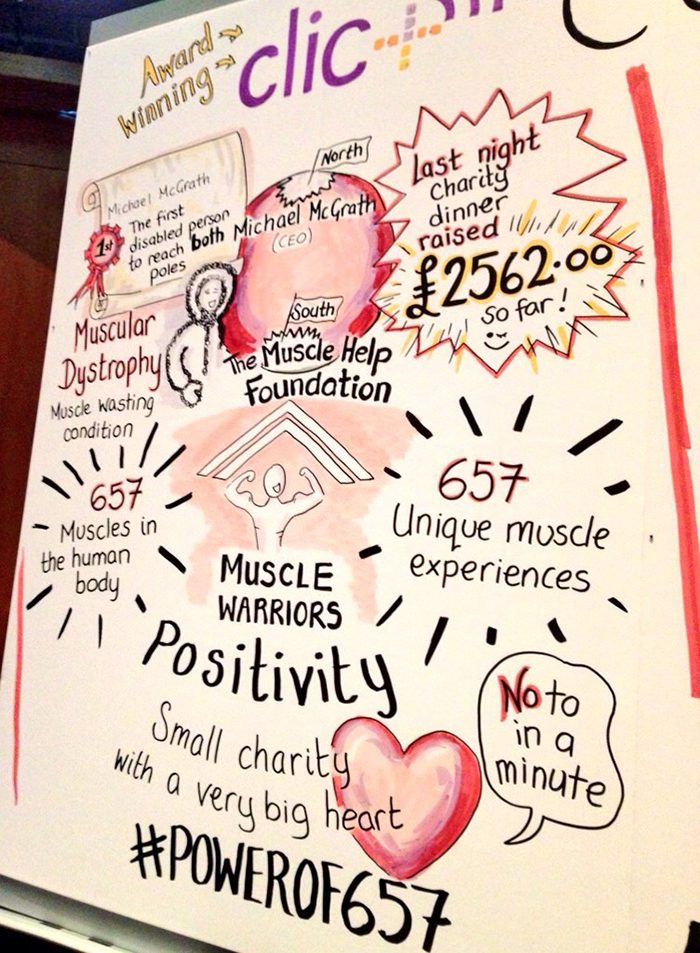 Award
Winning
clic
North
Michael McGrath
The first
disabled person
to reach both
poles
1st
Michael McGrath
(CEO)
South
Last night
charity
dinner
raised
£2562.00
so far!
Muscular
Dystrophy
Muscle wasting
condition
The Muscle Help
Foundation
657
Muscles in
the human
body
MUSCLE
WARRIORS
657
Unique muscle
experiences
Positivity
Small charity
with a very big heart
No to
in a
minute
#POWEROF657